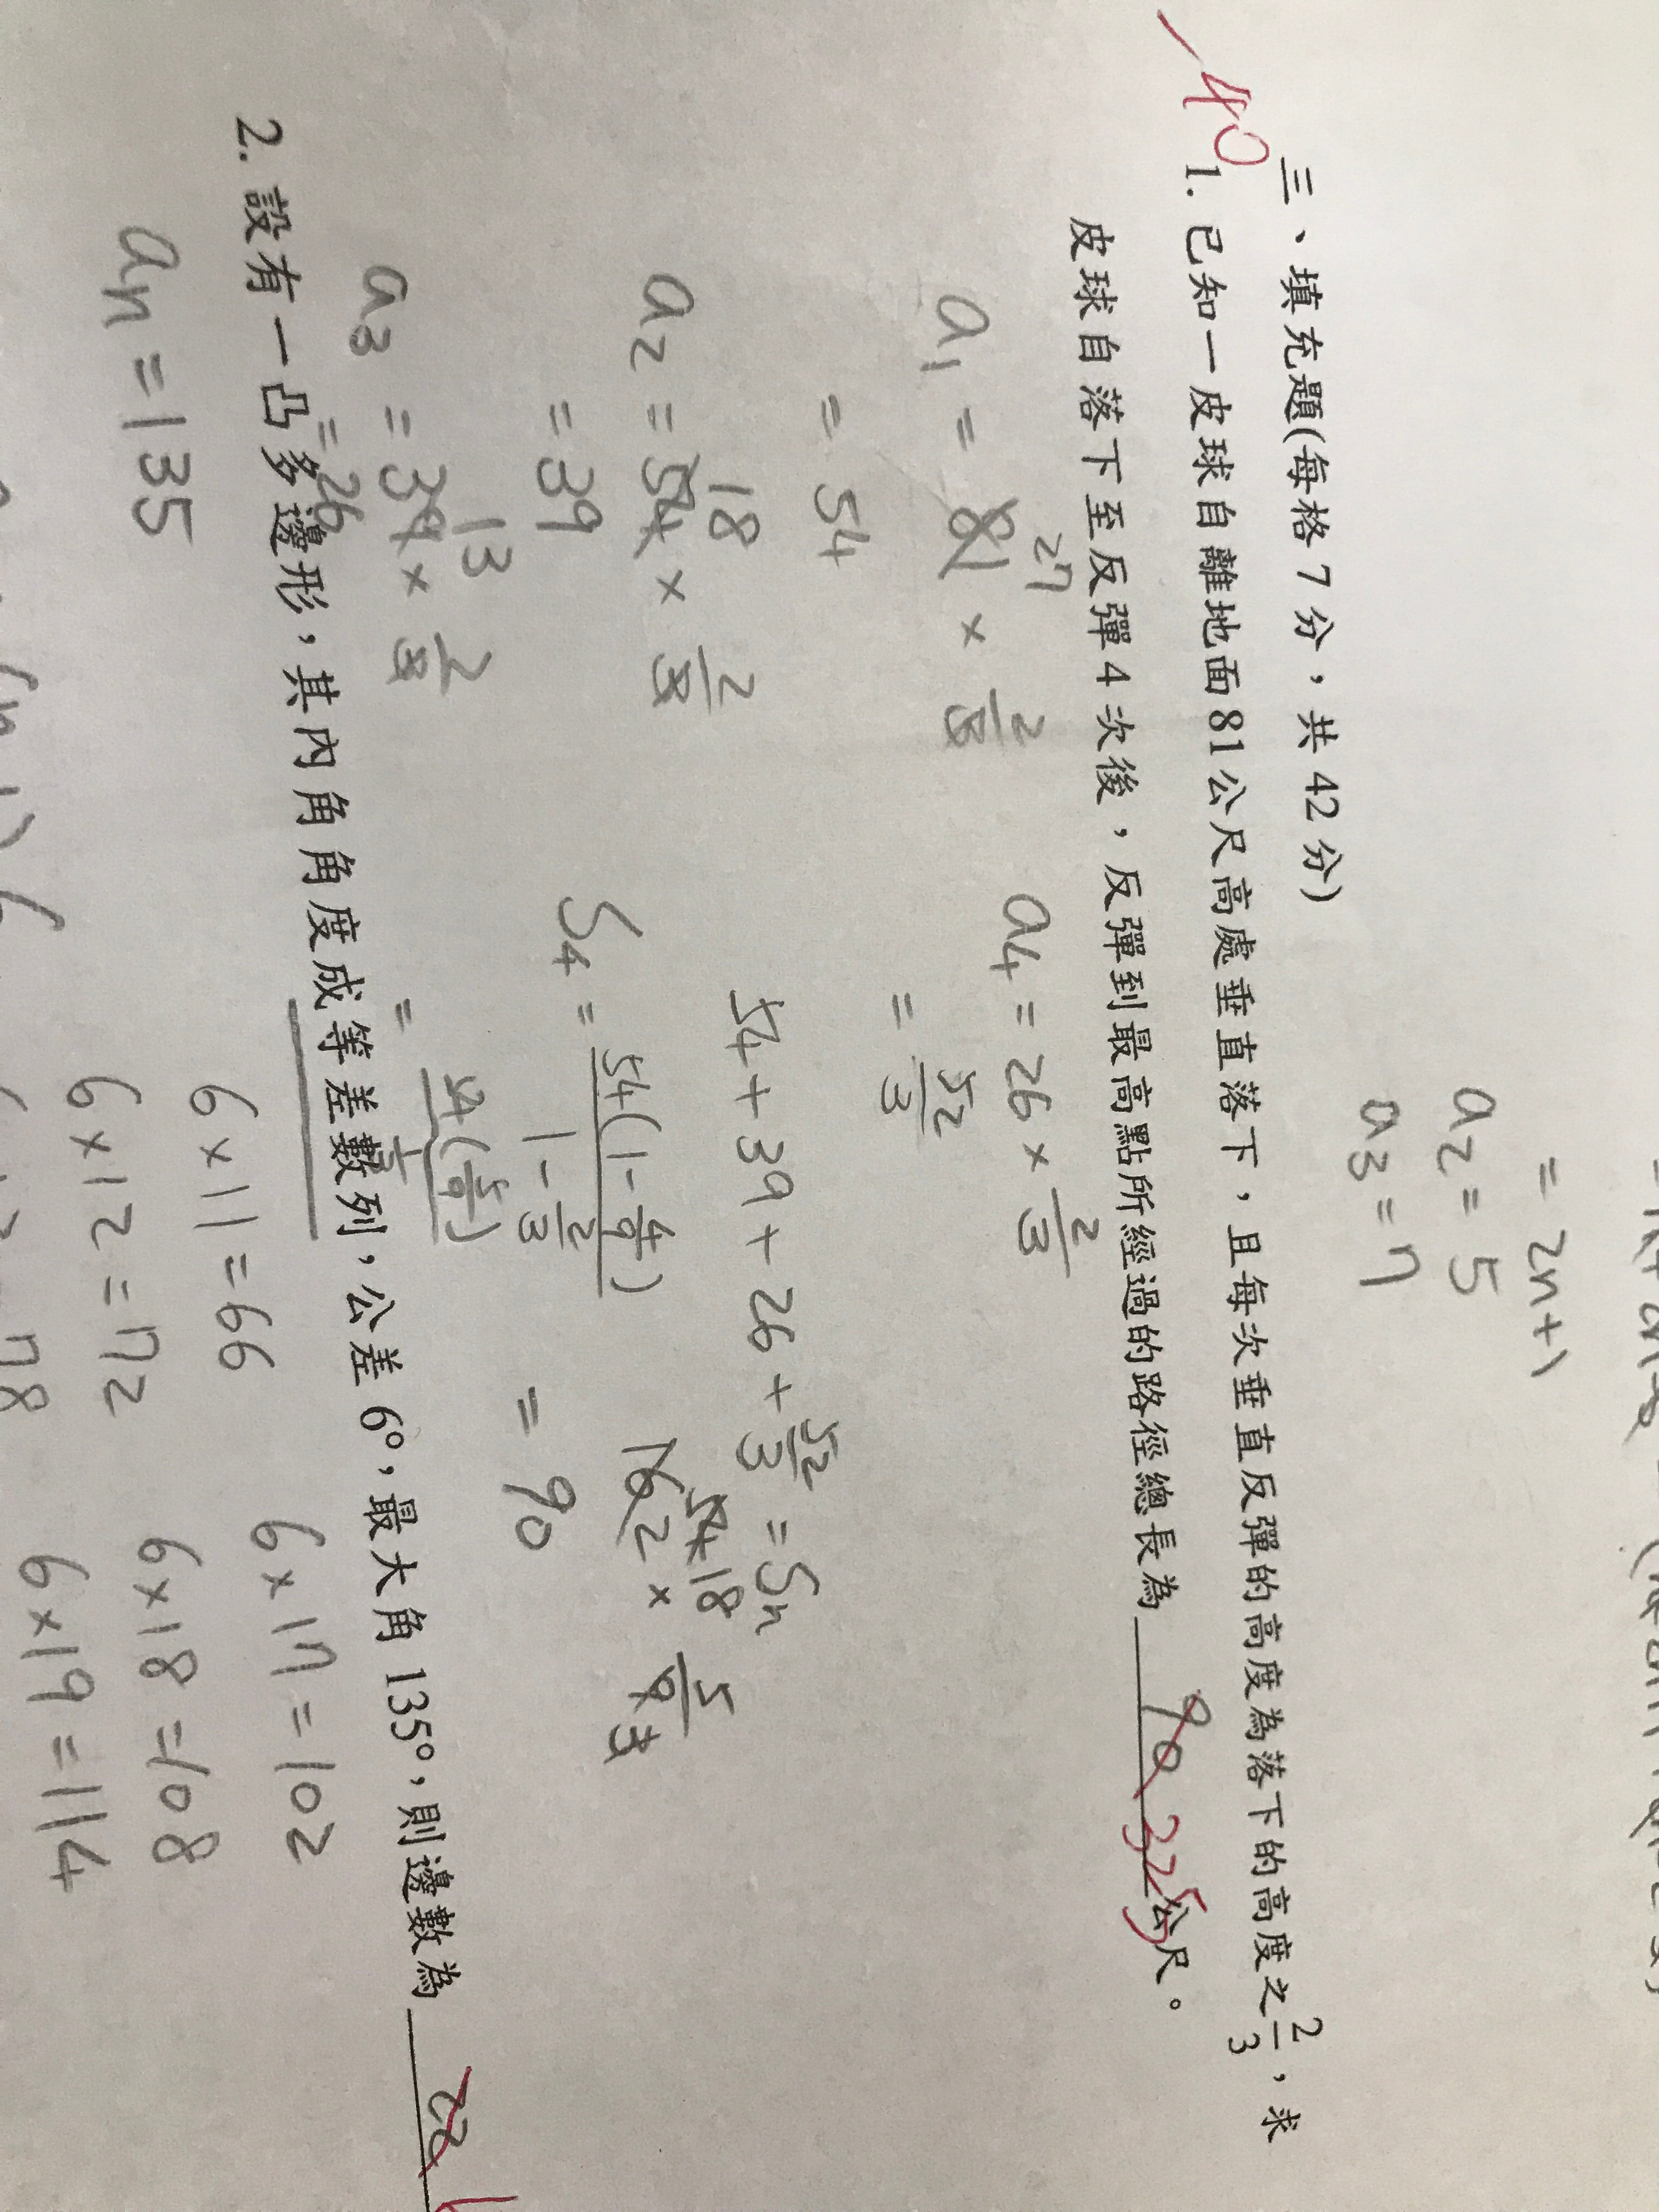 = 2n+1
a2 = 5
a3 = 7
三、填充題(每格7分，共42分)
40
1. 已知一皮球自離地面81公尺高處垂直落下，且每次垂直反彈的高度為落下的高度之2/3，求
皮球自落下至反彈4次後，反彈到最高點所經過的路徑總長為 90 325 公尺。
27
a1 = 81 × 2/3
= 54
18
a2 = 54 × 2/3
= 39
13
a3 = 39 × 2/3
= 26
a4 = 26 × 2/3
= 52/3
54 + 39 + 26 + 52/3 = Sn
54 18
162 ×
S4 = 54(1 -
1 - 2/3
= 90
2. 設有一凸多邊形，其內角角度成等差數列，公差6°，最大角135°，則邊數為
an = 135
6 × 11 = 66
6 × 12 = 72
78
6 × 17 = 102
6 × 18 = 108
6 × 19 = 114